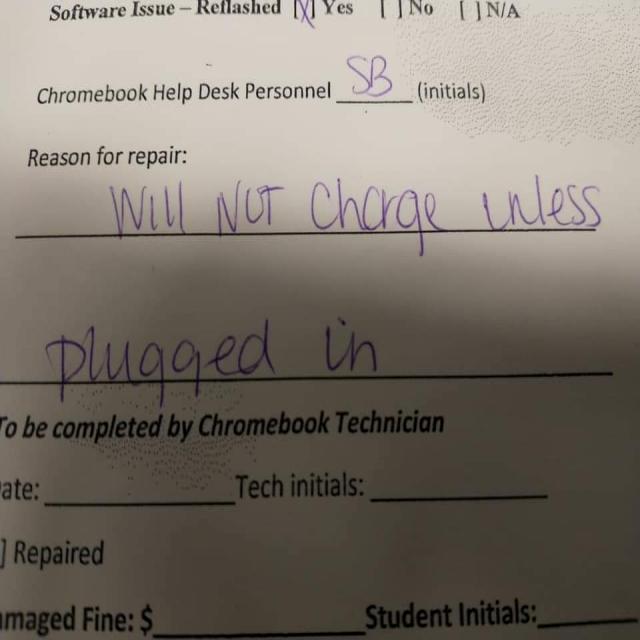 Software Issue – Reflashed [X] Yes [ ] No [ ] N/A
Chromebook Help Desk Personnel SB (initials)
Reason for repair:
Will NOT Charge unless
plugged in
To be completed by Chromebook Technician
ate: Tech initials:
] Repaired
maged Fine: $ Student Initials: